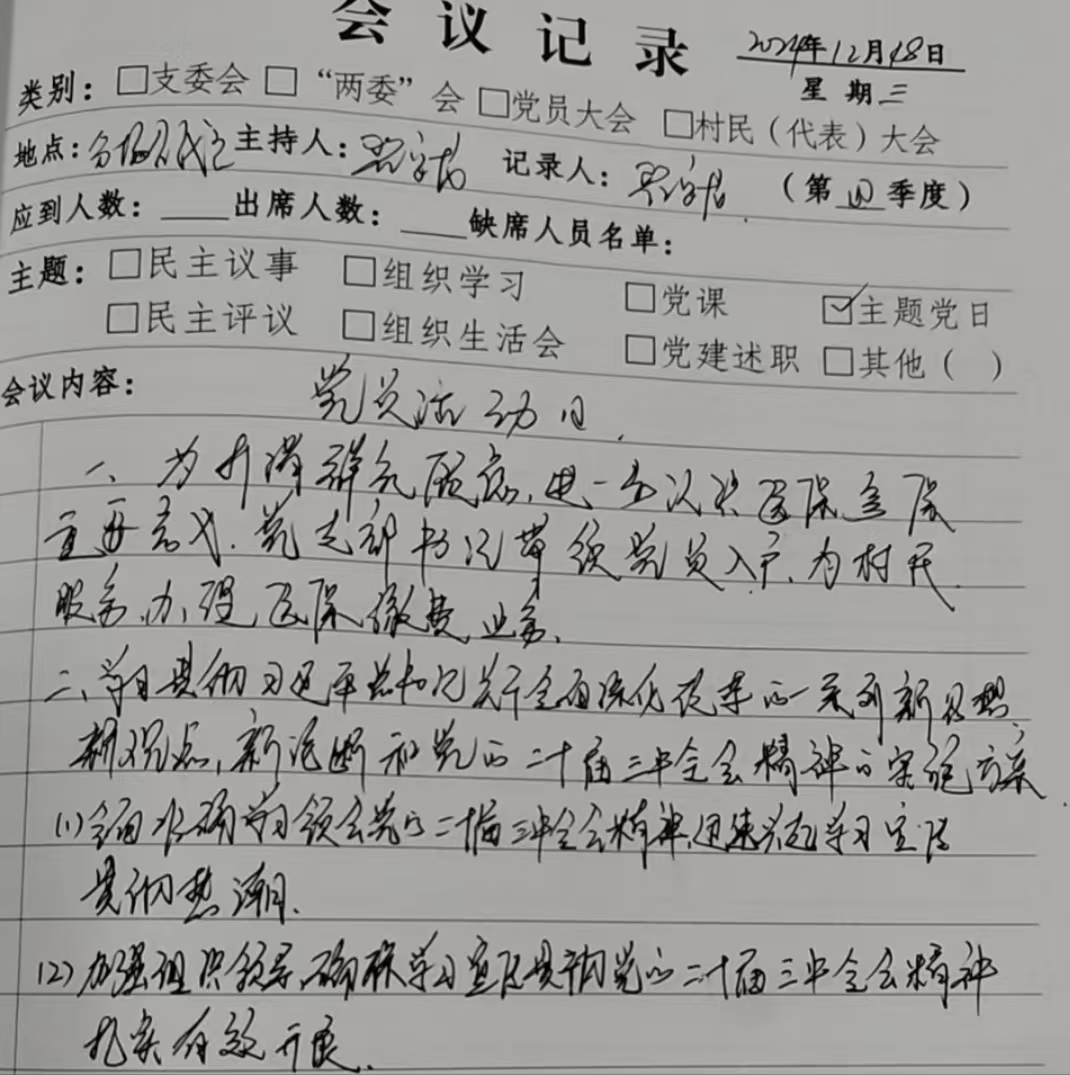 会议记录 2024年12月18日
星期三
类别：□支委会 □“两委”会 □党员大会 □村民（代表）大会
地点： 主持人： 记录人： （第四季度）
应到人数：____出席人数：____缺席人员名单：
主题：□民主议事 □组织学习 □党课 ☑主题党日
□民主评议 □组织生活会 □党建述职 □其他（ ）
会议内容： 党员活动日.
一、为 群众 ，进一步 医保
重要意义.党支部书记带领党员入户、为村民
服务、办理医保缴费业务.
二、学习贯彻习近平总书记关于全面深化改革的一系列新思想、
新观点、新论断和党的二十届三中全会精神的实施方案.
(1)全面准确学习领会党的二十届三中全会精神，迅速兴起学习宣传
贯彻热潮.
(2)加强组织领导，确保学习宣传贯彻党的二十届三中全会精神
扎实有效开展.